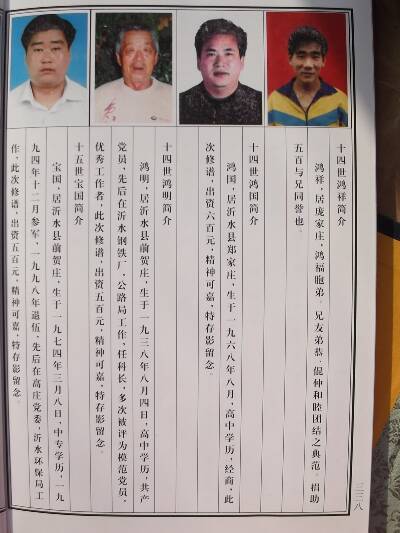 十四世鸿祥简介
鸿祥，居庞家庄，鸿福胞弟。兄友弟恭，倪仲和睦团结之典范，捐助
五百与兄同誉也。
十四世鸿国简介
鸿国，居沂水县郑家庄，生于一九六八年八月，高中学历，经商，此
次修谱，出资六百元，精神可嘉，特存影留念。
十四世鸿明简介
鸿明，居沂水县前贺庄，生于一九三八年八月四日，高中学历，共产
党员，先后在沂水钢铁厂，公路局工作，任科长，多次被评为模范党员，
优秀工作者，此次修谱，出资五百元，精神可嘉，特存影留念。
十五世宝国简介
宝国，居沂水县前贺庄，生于一九七四年三月八日，中专学历，一九
九四年十二月参军，一九九八年退伍，先后在高庄党委，沂水环保局工
作，此次修谱，出资五百元，精神可嘉，特存影留念。
三三八